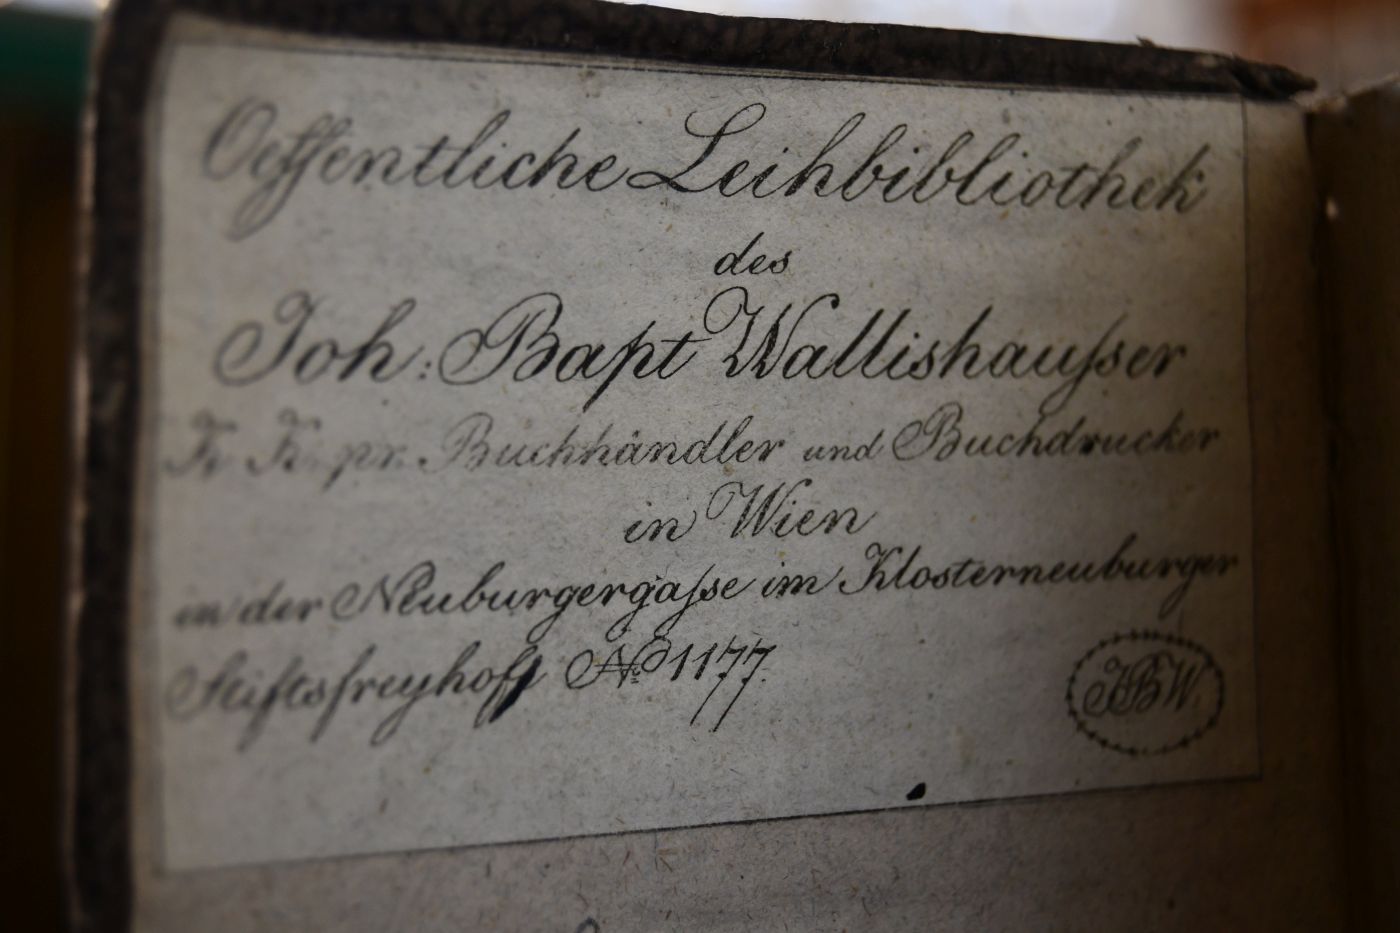 Oeffentliche Leihbibliothek
des
Joh: Bapt Wallishauſser
K. K. pr. Buchhändler und Buchdrucker
in Wien
in der Neuburgergaſse im Klosterneuburger
Stiftsfreyhoff No 1177.
JBW.